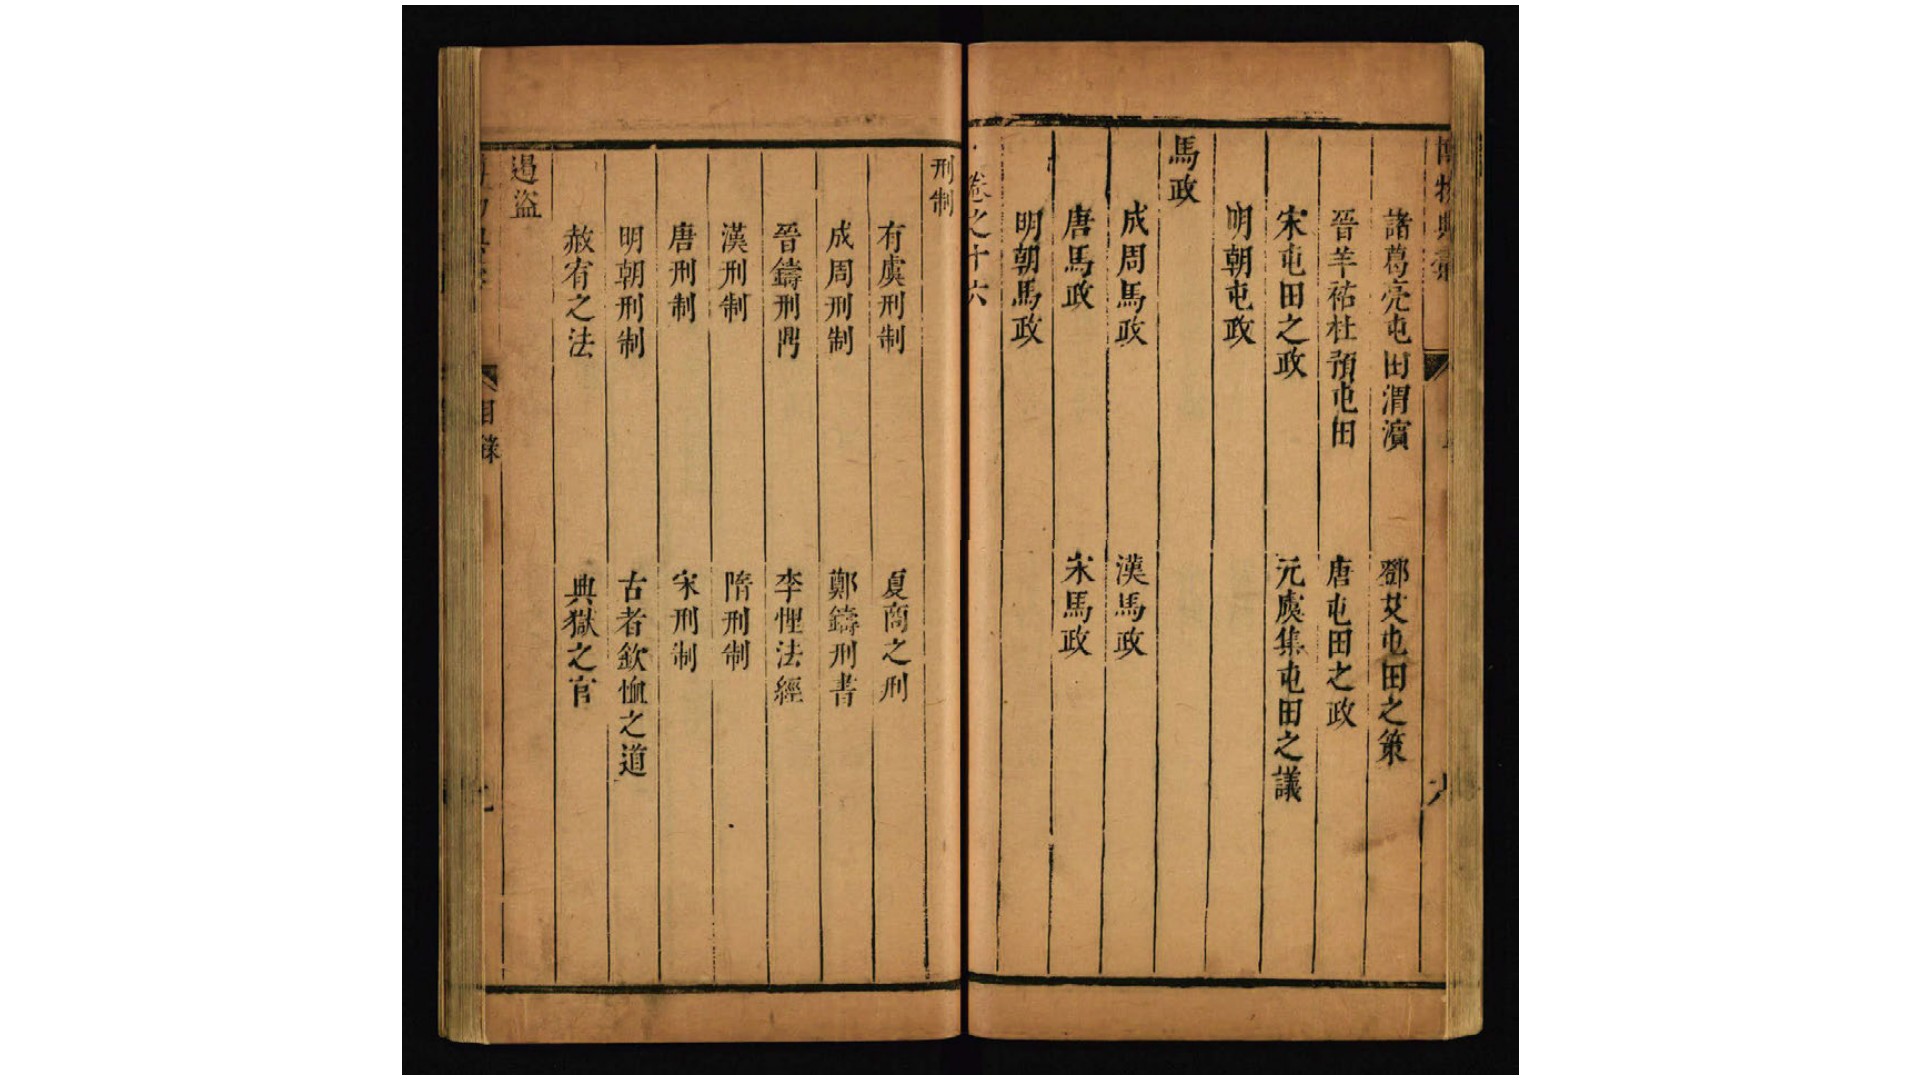 博物典彙
諸葛亮屯田渭濱
鄧艾屯田之策
晉羊祜杜預屯田
唐屯田之政
宋屯田之政
元虞集屯田之議
明朝屯政
馬政
成周馬政
漢馬政
唐馬政
宋馬政
明朝馬政
卷之十六
刑制
有虞刑制
夏商之刑
成周刑制
鄭鑄刑書
晉鑄刑鼎
李悝法經
漢刑制
隋刑制
唐刑制
宋刑制
明朝刑制
古者欽恤之道
赦宥之法
典獄之官
遏盜
目錄